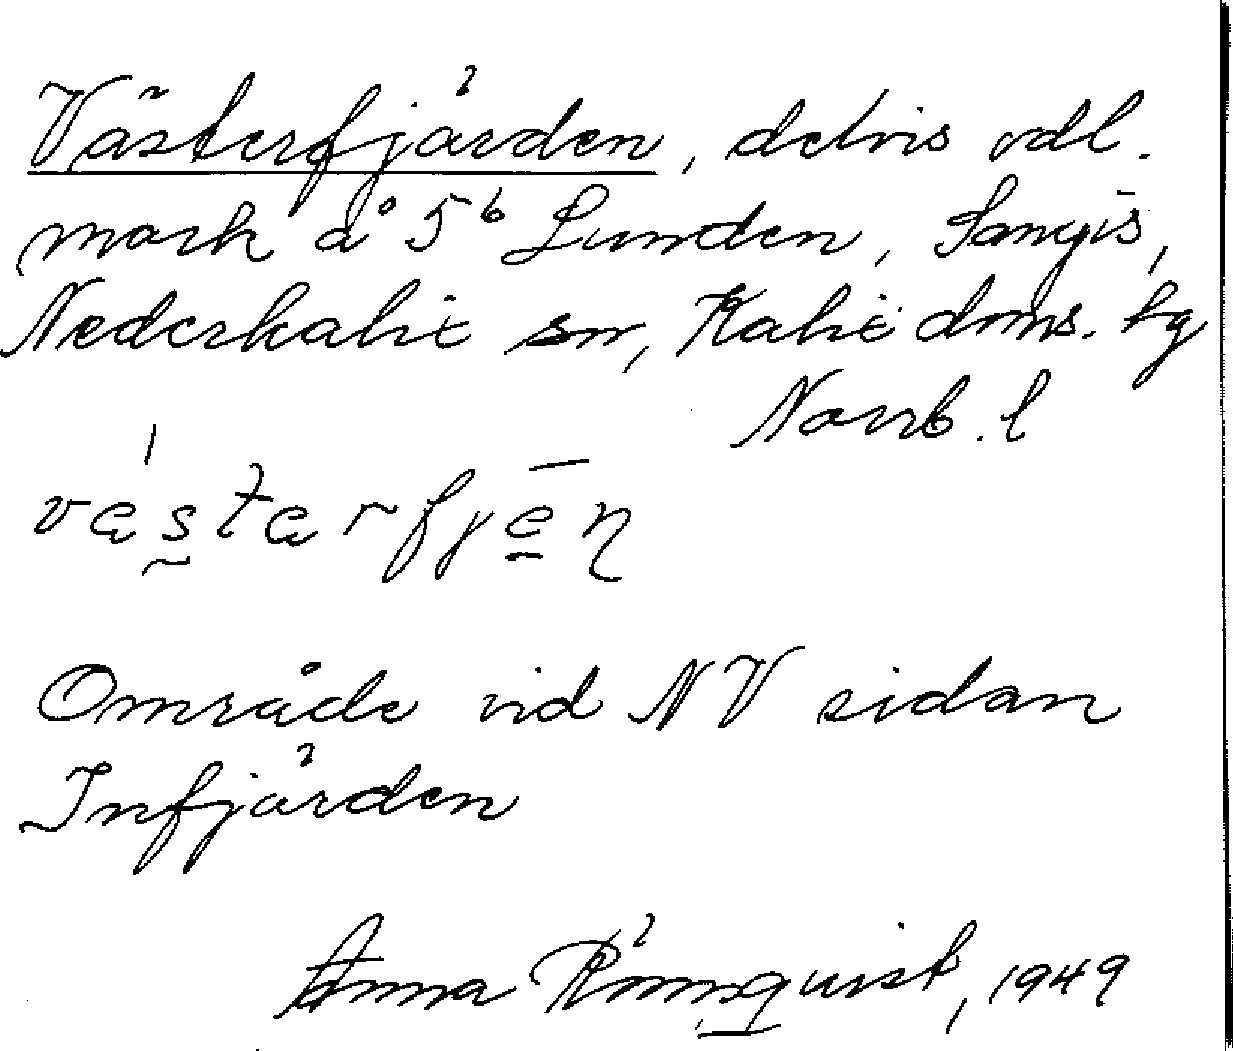 Västerfjärden, delvis odl.
mark å 5b Lunden, Sangis,
Nederkalix sn, Kalix doms. tg
Norrb. l
Område vid NV sidan
Infjärden
Anna Rönnquist, 1949